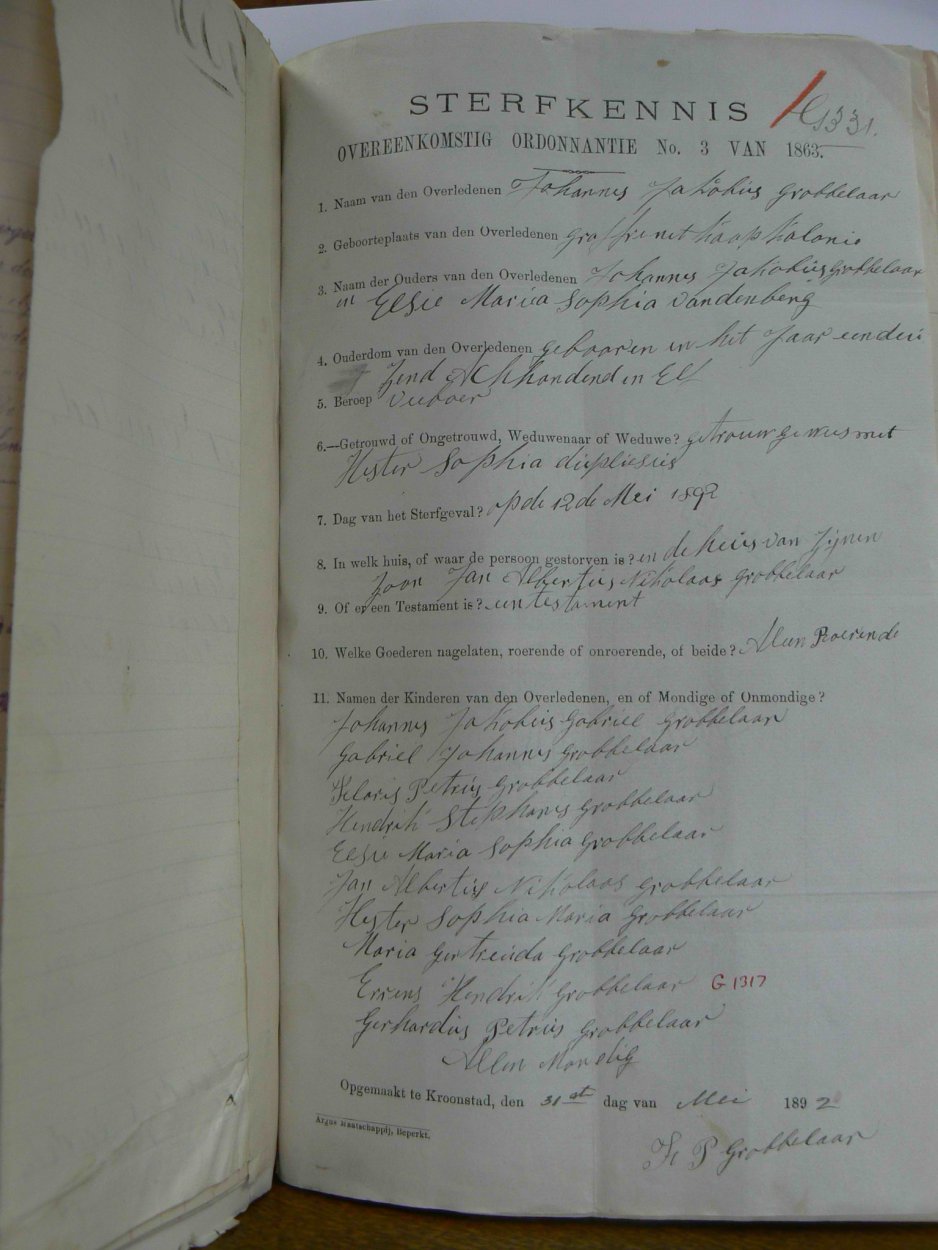 STERFKENNIS
G1331.
OVEREENKOMSTIG ORDONNANTIE No. 3 VAN 1863.
1. Naam van den Overledenen Johannes Jakobus Grobbelaar
2. Geboorteplaats van den Overledenen Graffrenet Kaap Kolonie
3. Naam der Ouders van den Overledenen Johannes Jakobus Grobbelaar
en Elsie Maria Sophia Vandenberg
4. Ouderdom van den Overledenen gebooren in het Jaar eendui
Zend Achhonderd en Elf
5. Beroep Veeboer
6.—Getrouwd of Ongetrouwd, Weduwenaar of Weduwe? getrouw gewees met
Hester Sophia duplessis
7. Dag van het Sterfgeval? op de 12de Mei 1892
8. In welk huis, of waar de persoon gestorven is? en de huis van Zijnen
Zoon Jan Albertus Nikolaas Grobbelaar
9. Of er een Testament is? een testament
10. Welke Goederen nagelaten, roerende of onroerende, of beide? Alleen Roerende
11. Namen der Kinderen van den Overledenen, en of Mondige of Onmondige?
Johannes Jakobus Gabriel Grobbelaar
Gabriel Johannes Grobbelaar
Petrus Grobbelaar
Hendrik Stephanus Grobbelaar
Elsie Maria Sophia Grobbelaar
Jan Albertus Nikolaas Grobbelaar
Hester Sophia Maria Grobbelaar
Maria Gertreuida Grobbelaar
Hendrik Grobbelaar G 1317
Gerhardus Petrus Grobbelaar
Allen Mondig
Opgemaakt te Kroonstad, den 31st dag van Mei 1892
Argus Maatschappij, Beperkt.
P Grobbelaar